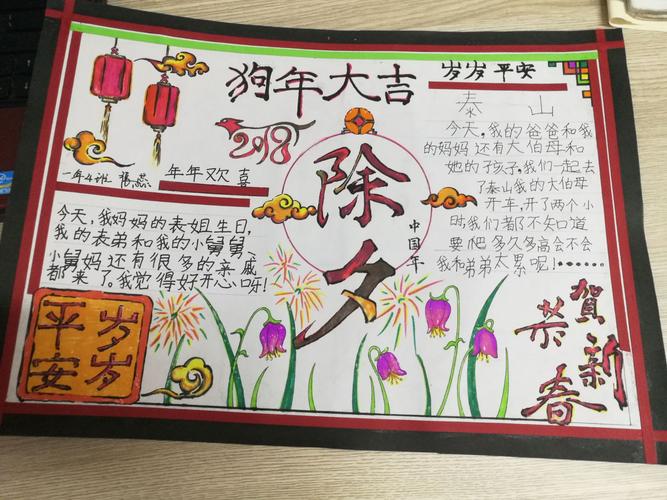 狗年大吉
岁岁平安
2018
一年4班 杨燕
年年欢喜
今天,我妈妈的表姐生日,
我的表弟和我的小舅舅、
小舅妈还有很多的亲戚
都来了。我觉得好开心呀!
除夕
中国年
泰山
今天,我的爸爸和我
的妈妈还有大伯母和
她的孩子,我们一起去
了泰山我的大伯母
开车,开了两个小
时我们都不知道
要爬多久多高会不会
我和弟弟太累呢!……
岁岁
平安
贺新
恭春